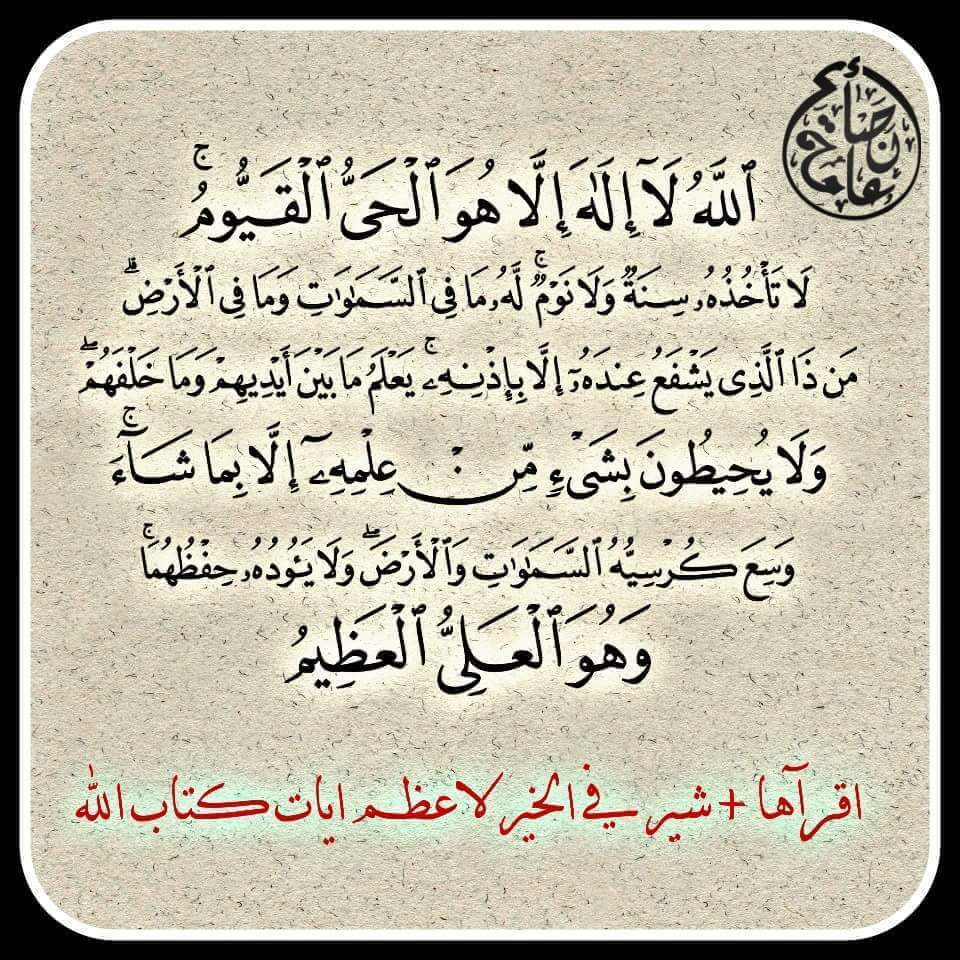 ٱللَّهُ لَآ إِلَٰهَ إِلَّا هُوَ ٱلْحَىُّ ٱلْقَيُّومُ ۚ
لَا تَأْخُذُهُۥ سِنَةٌ وَلَا نَوْمٌ ۚ لَّهُۥ مَا فِى ٱلسَّمَٰوَٰتِ وَمَا فِى ٱلْأَرْضِ ۗ
مَن ذَا ٱلَّذِى يَشْفَعُ عِندَهُۥٓ إِلَّا بِإِذْنِهِۦ ۚ يَعْلَمُ مَا بَيْنَ أَيْدِيهِمْ وَمَا خَلْفَهُمْ ۖ
وَلَا يُحِيطُونَ بِشَىْءٍ مِّنْ عِلْمِهِۦٓ إِلَّا بِمَا شَآءَ ۚ
وَسِعَ كُرْسِيُّهُ ٱلسَّمَٰوَٰتِ وَٱلْأَرْضَ ۖ وَلَا يَـُٔودُهُۥ حِفْظُهُمَا ۚ
وَهُوَ ٱلْعَلِىُّ ٱلْعَظِيمُ
اقرآها + شير في الخير لاعظم ايات كتاب الله